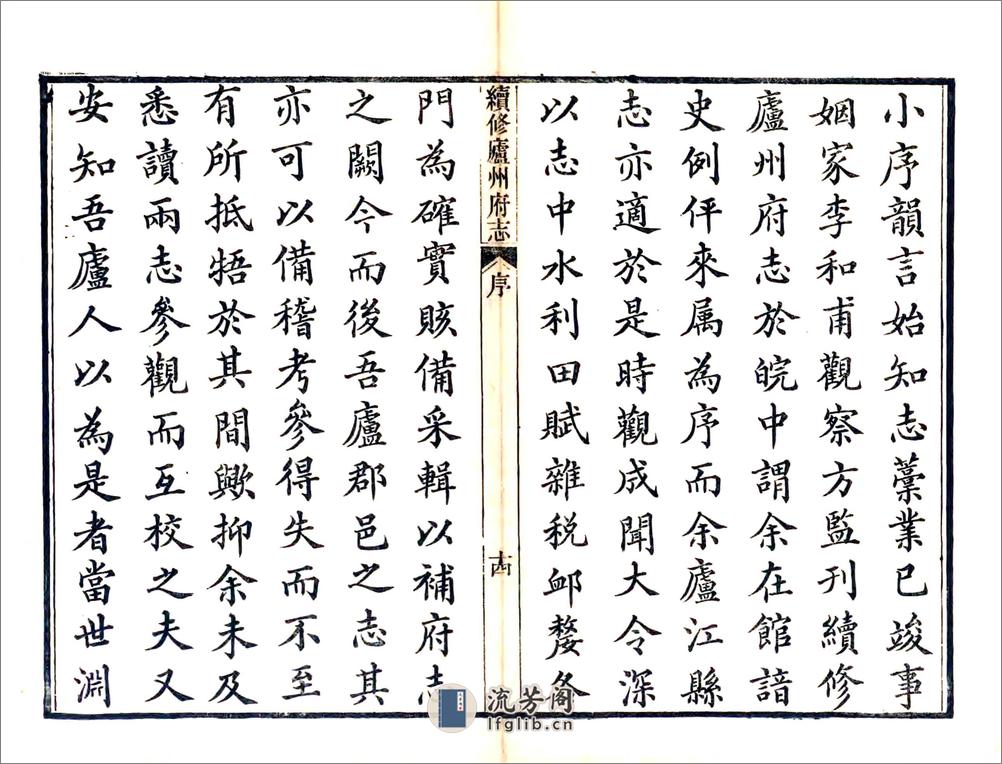 小序韻言始知志藁業已竣事
姻家李和甫觀察方監刊續修
廬州府志於皖中謂余在館諳
史例伻來属為序而余廬江縣
志亦適於是時觀成聞大令深
以志中水利田賦雜税邮嫠各
續修廬州府志
序
十四
門為確實賅備采輯以補府志
之闕今而後吾廬郡邑之志其
亦可以備稽考參得失而不至
有所抵牾於其間歟抑余未及
悉讀兩志參觀而互校之夫又
安知吾廬人以為是者當世淵
流芳阁
lfglib.cn